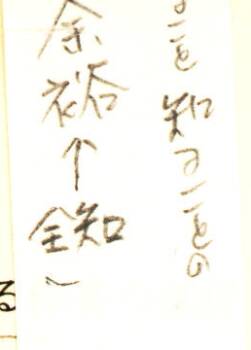 ことを知ることの
余裕↑全知」
る